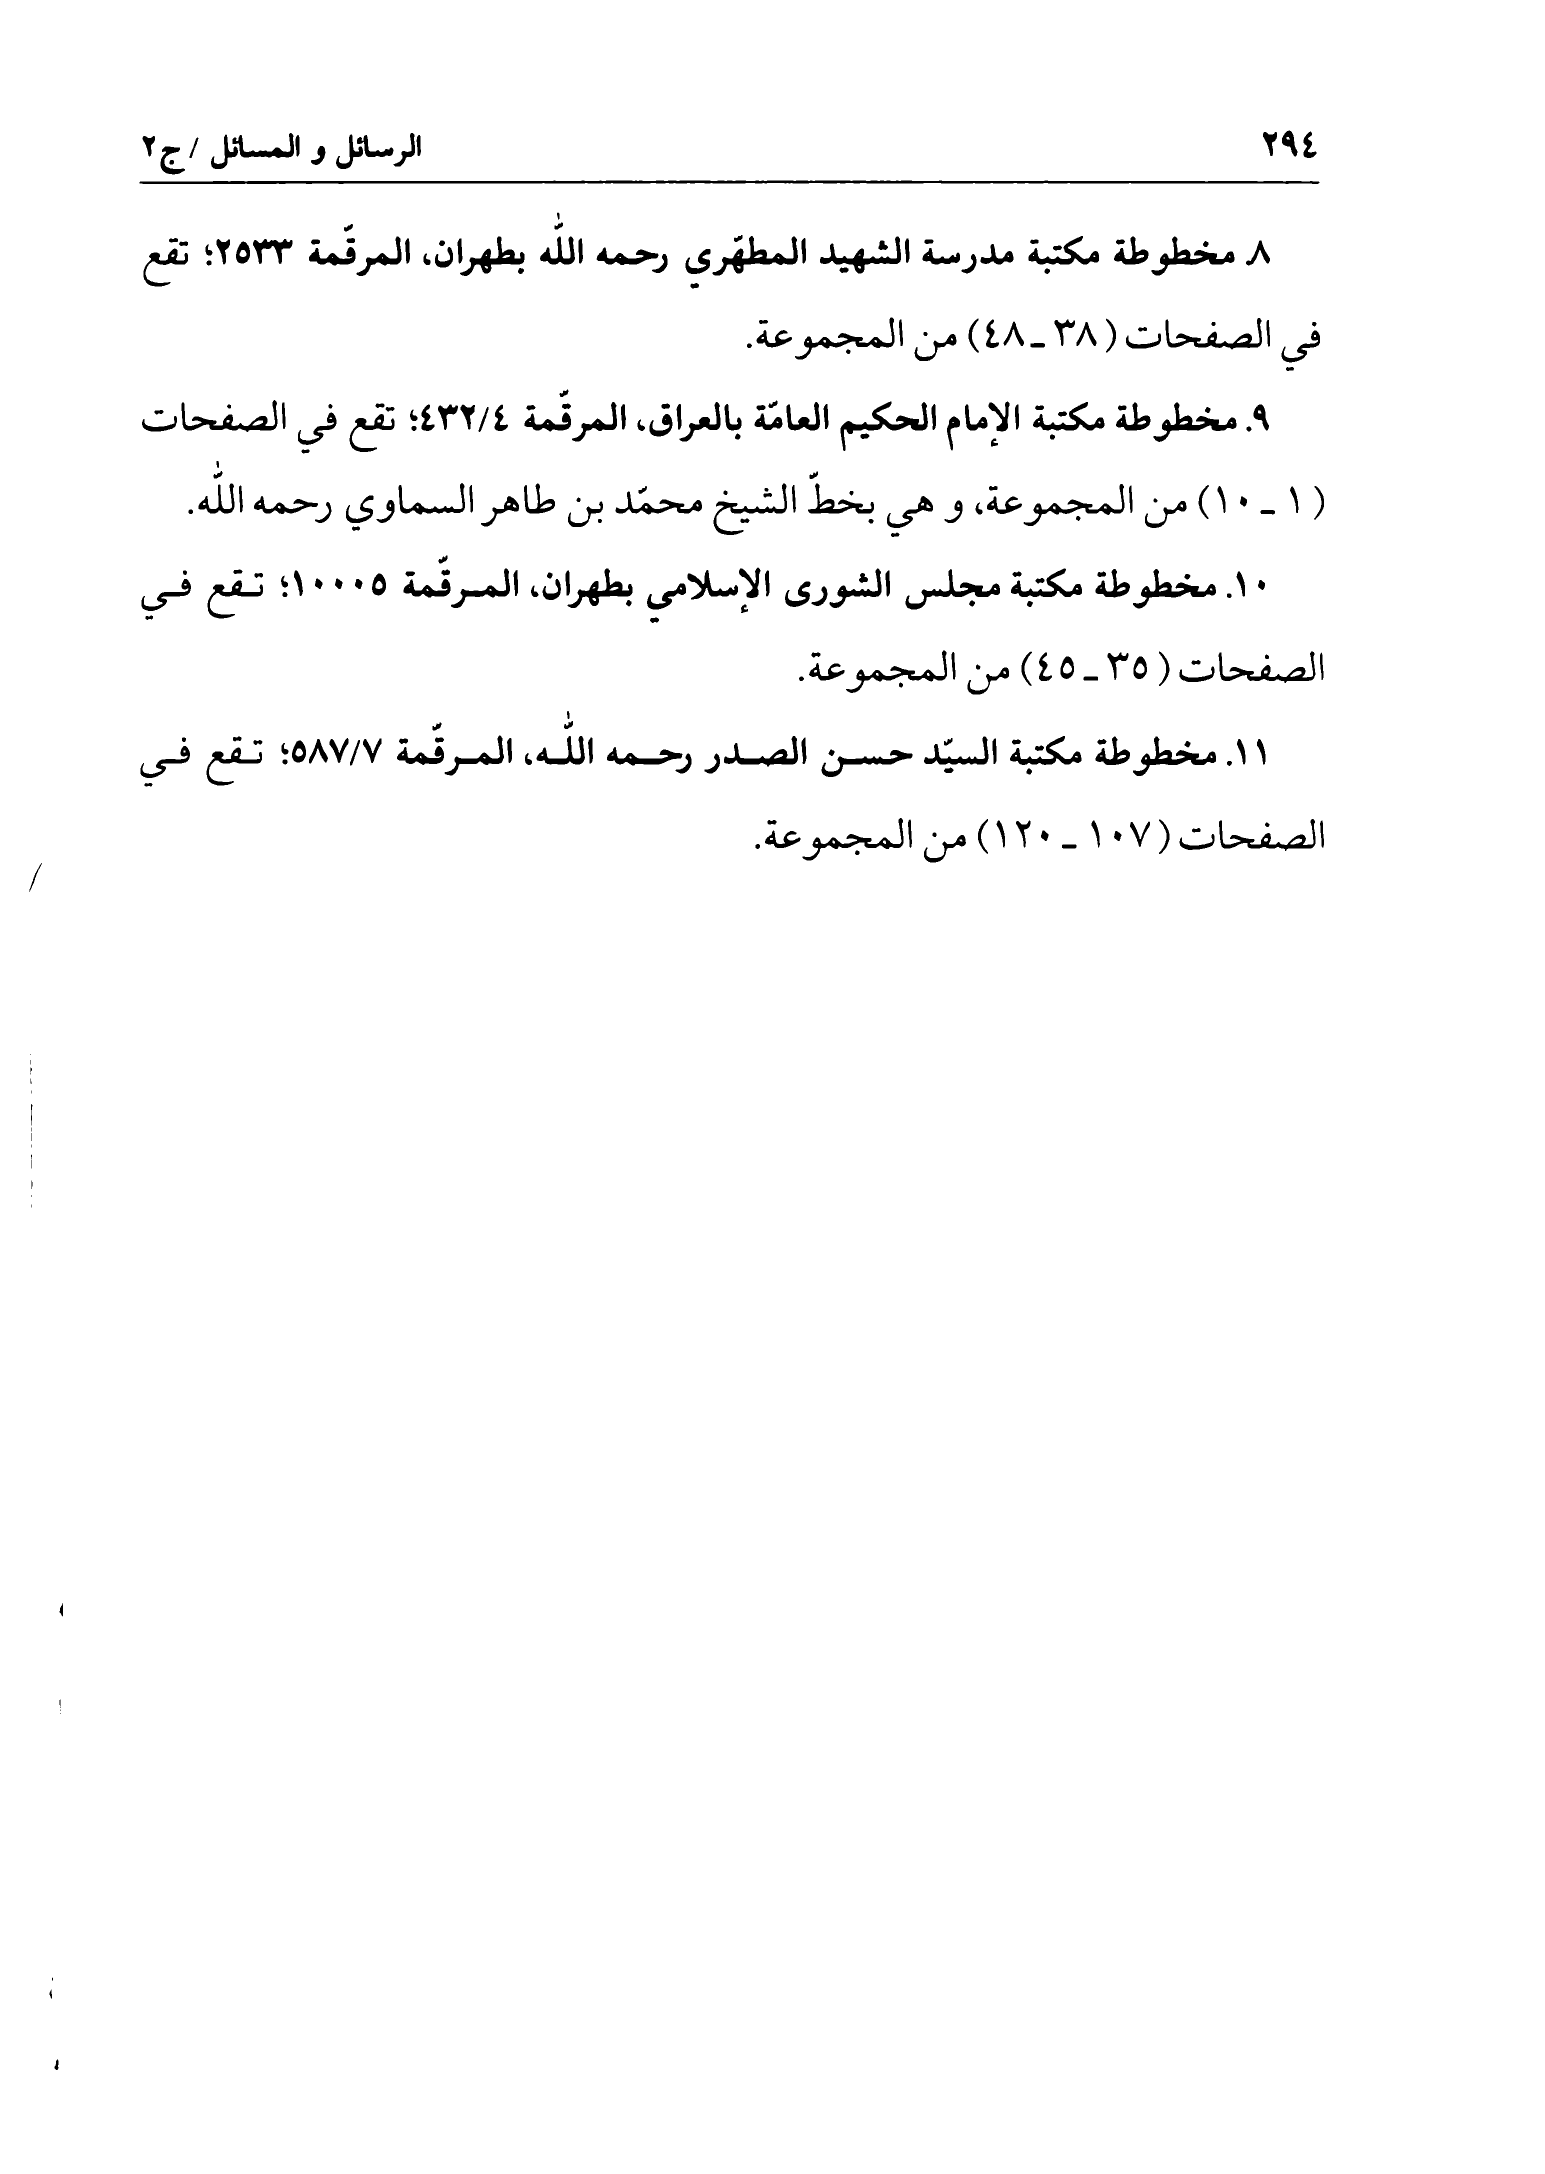 ٢٩٤ الرسائل و المسائل / ج٢
٨. مخطوطة مكتبة مدرسة الشهيد المطهّري رحمه اللّٰه بطهران، المرقّمة ٢٥٣٣؛ تقع
في الصفحات (٣٨ ـ ٤٨) من المجموعة.
٩. مخطوطة مكتبة الإمام الحكيم العامّة بالعراق، المرقّمة ٤٣٢/٤؛ تقع في الصفحات
(١ ـ ١٠) من المجموعة، و هي بخطّ الشيخ محمّد بن طاهر السماوي رحمه اللّٰه.
١٠. مخطوطة مكتبة مجلس الشورى الإسلامي بطهران، المـرقّمة ١٠٠٠٥؛ تـقع فـي
الصفحات (٣٥ ـ ٤٥) من المجموعة.
١١. مخطوطة مكتبة السيّد حسـن الصـدر رحـمه اللّٰـه، المـرقّمة ٥٨٧/٧؛ تـقع فـي
الصفحات (١٠٧ ـ ١٢٠) من المجموعة.